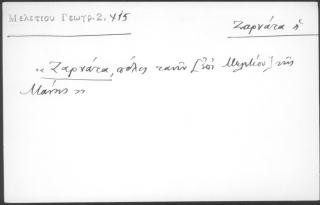 Μελετίου Γεωγρ. 2, 415
Ζαρνάτα ἡ
« Ζαρνάτα, πόλις τανῦν [ἐπὶ Μελετίου] τῆς
Μάνης »